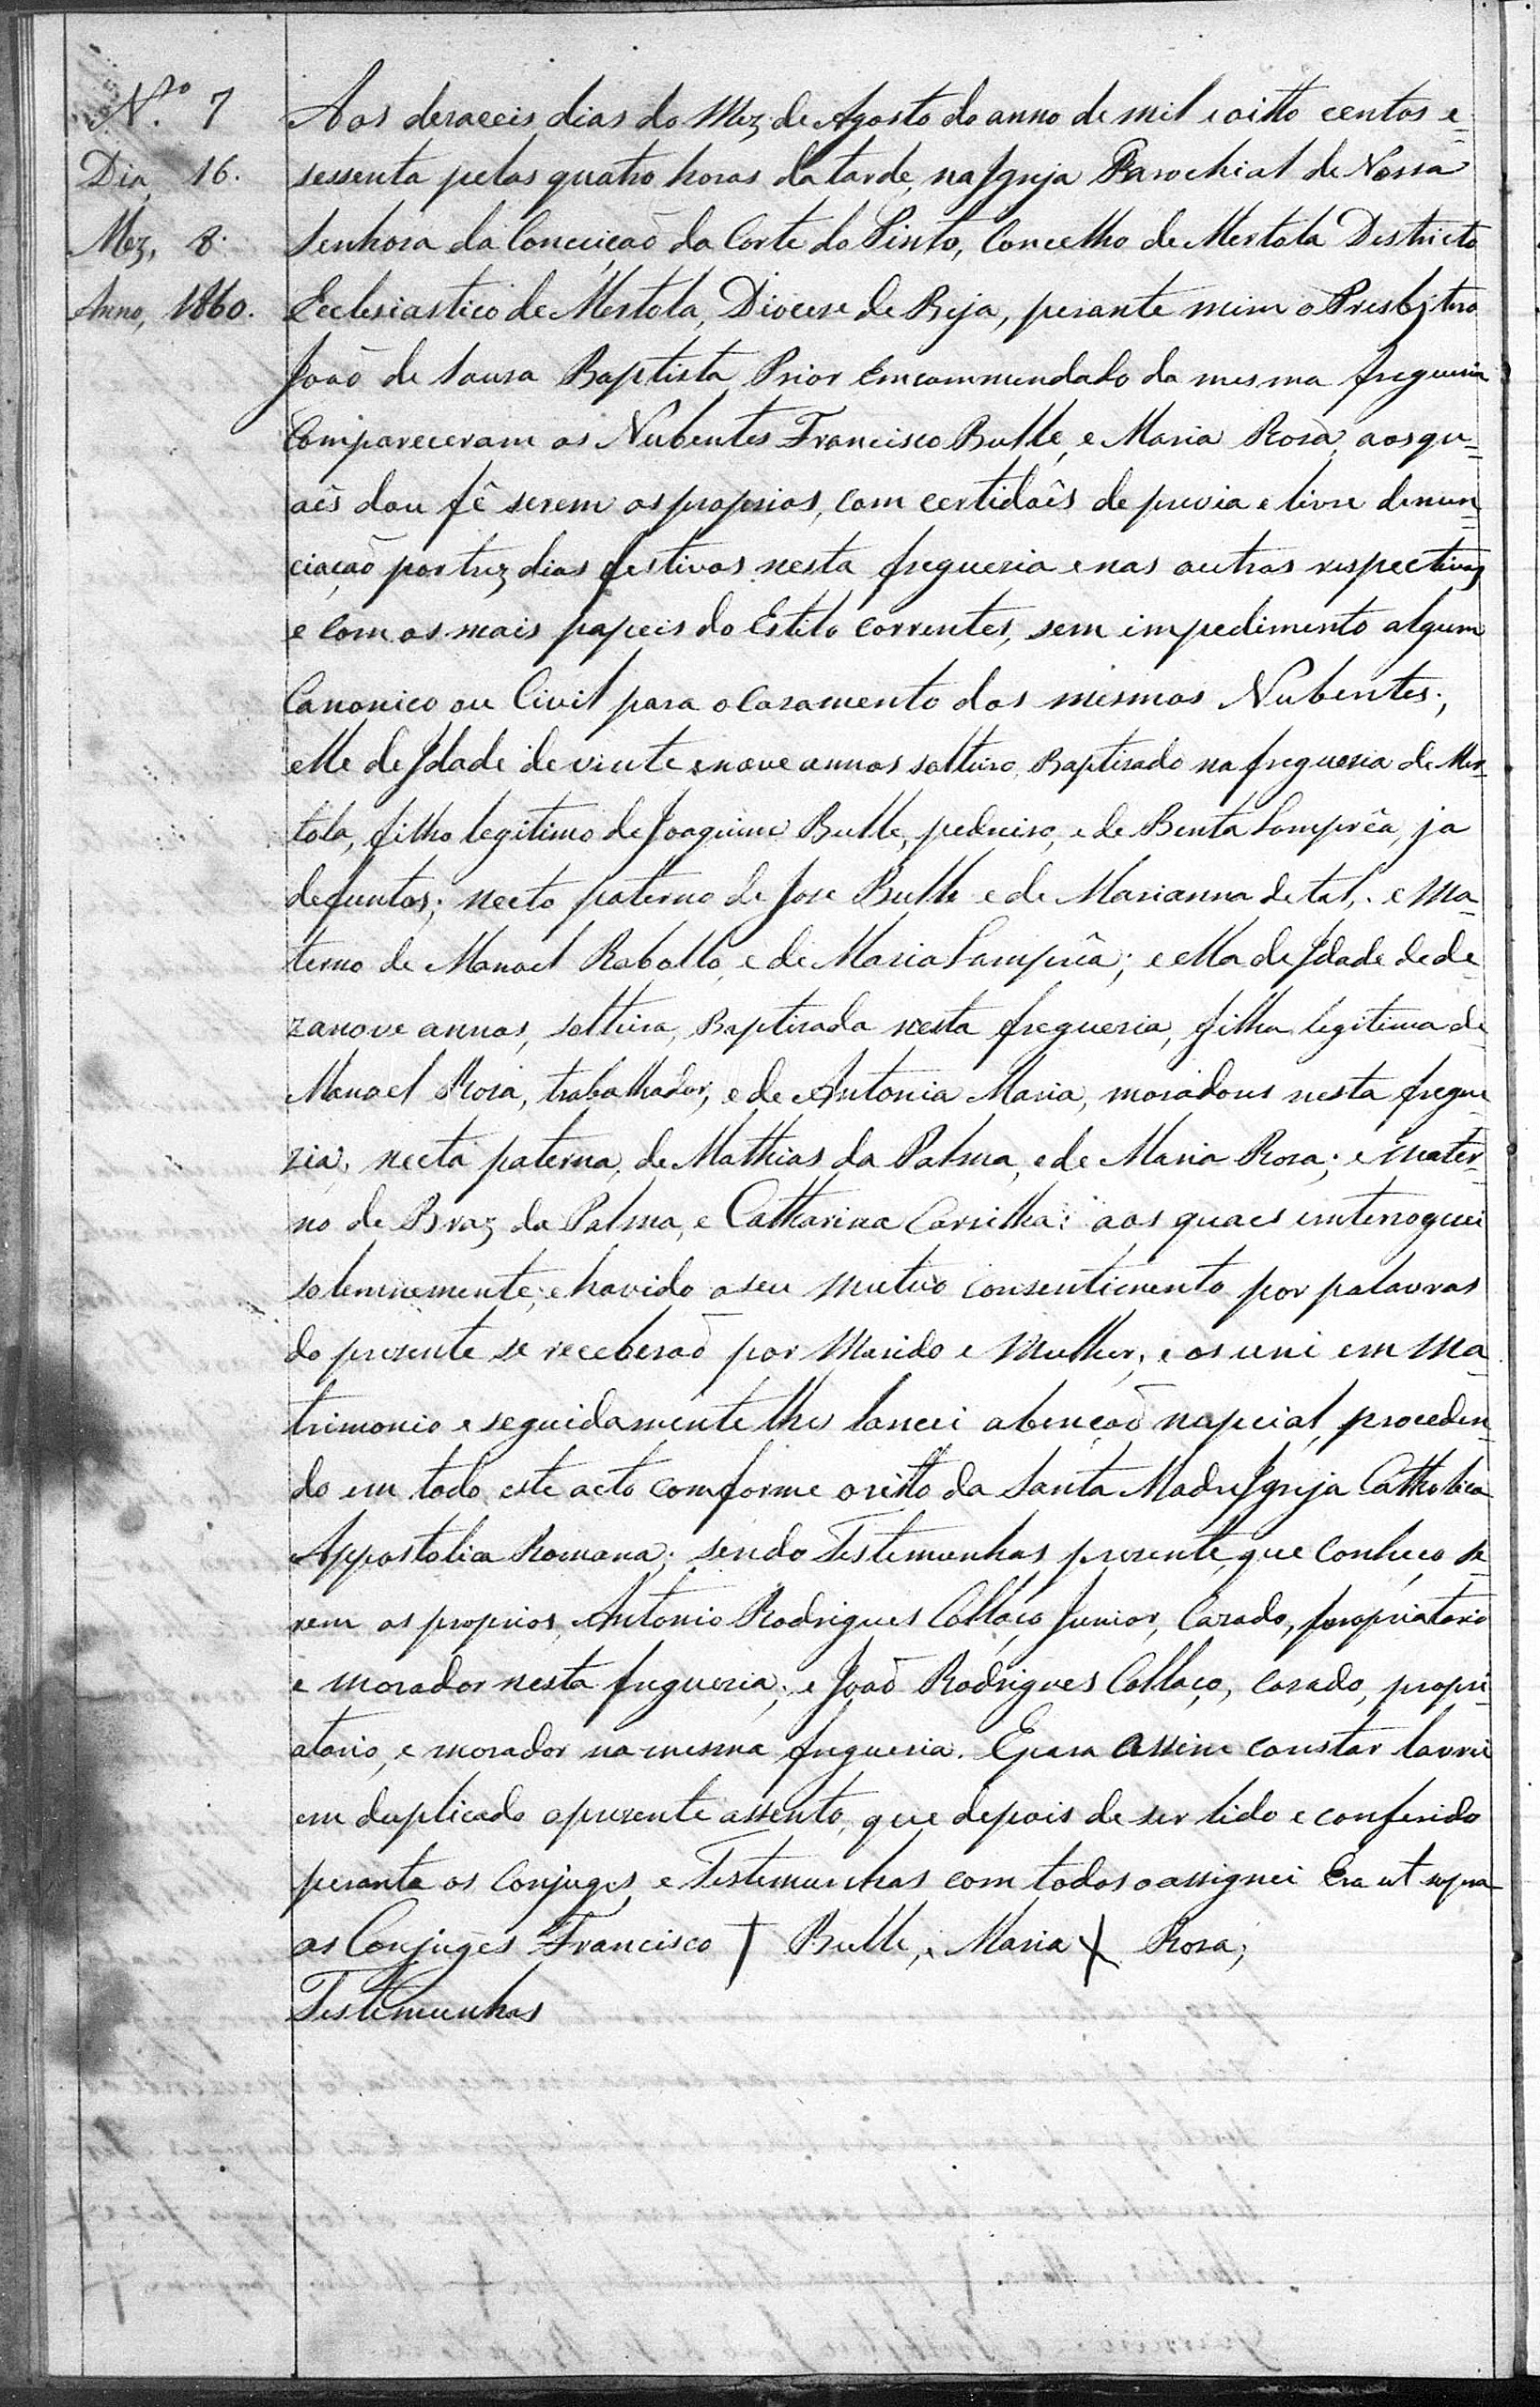 N.º 7
Dia, 16.
Mez, 8.
Anno, 1860.
Aos dezaceis dias do Mez de Agosto do anno de mil e oitto centos e
sessenta pelas quatro horas da tarde, na Jgrija Parochial de Nossa
Senhora da Conceiçaõ da Corte do Pinto, Concelho de Mertola Districto
Ecclesiastico de Mertola, Diocese de Beja, perante mim o Presbitero
Joaõ de Souza Baptista Prior Emcommendado da mesma fregueria
Compareceram os Nubentes Francisco Bulle, e Maria Rosa, aos qu=
aês dou fê serem os proprios, com certidoês de previa e livre denun=
ciaçaõ por trez dias festivos nesta fregueria e nas outras respectivas
e com os mais papeis do Estilo correntes, sem impedimento algum
Canonico ou Civil para o Casamento dos mesmos Nubentes;
elle de Jdade de vinte e nove annos soltteiro, Baptisado na fregueria de Mer=
tola, filho legitimo de Joaquim Bulle, pedreiro, e de Benta Lamprêa, ja
defuntos; necto paterno de Jose Bulle e de Marianna de tal, e Ma=
terno de Manoel Rabollo, e de Maria Lamprêa; e ella de Jdade de de=
zanove annos, soltteira, Baptisada nesta fregueria, filha legitima de
Manoel Rosa, trabalhador, e de Antonia Maria, moradores nesta fregue
zia, necta paterna, de Mathias da Palma, e de Maria Rosa; e mater=
no de Braz da Palma, e Catharina Carrilha: aos quaes emterroguei
solemnemente; e havido o seu mutuo consentimento por palavras
do prezente se receberaõ por Marido e Mulher, e os uni em Ma=
trimonio e seguidamente lhes lancei a bençaõ napcial, proceden=
do em todo este acto comforme o ritto da Santa Madre Jgrija Catholica
Appostolica Romana; sendo Testemunhas prezente, que conheço se=
rem os proprios, Antonio Rodrigues Collaço Junior, Cazado, propriatario
e morador nesta fregueria; e Joaõ Rodrigues Collaço, casado, propri=
atario, e morador na mesma fregueria. E para assim constar lavrei
em duplicado o prezente assento, que depois de ser lido e conferido
peranta os Conjuges e Testemunhas com todos o assignei Era ut supra
os Conjuges Francisco † Bulle, Maria † Rosa;
Testemunhas